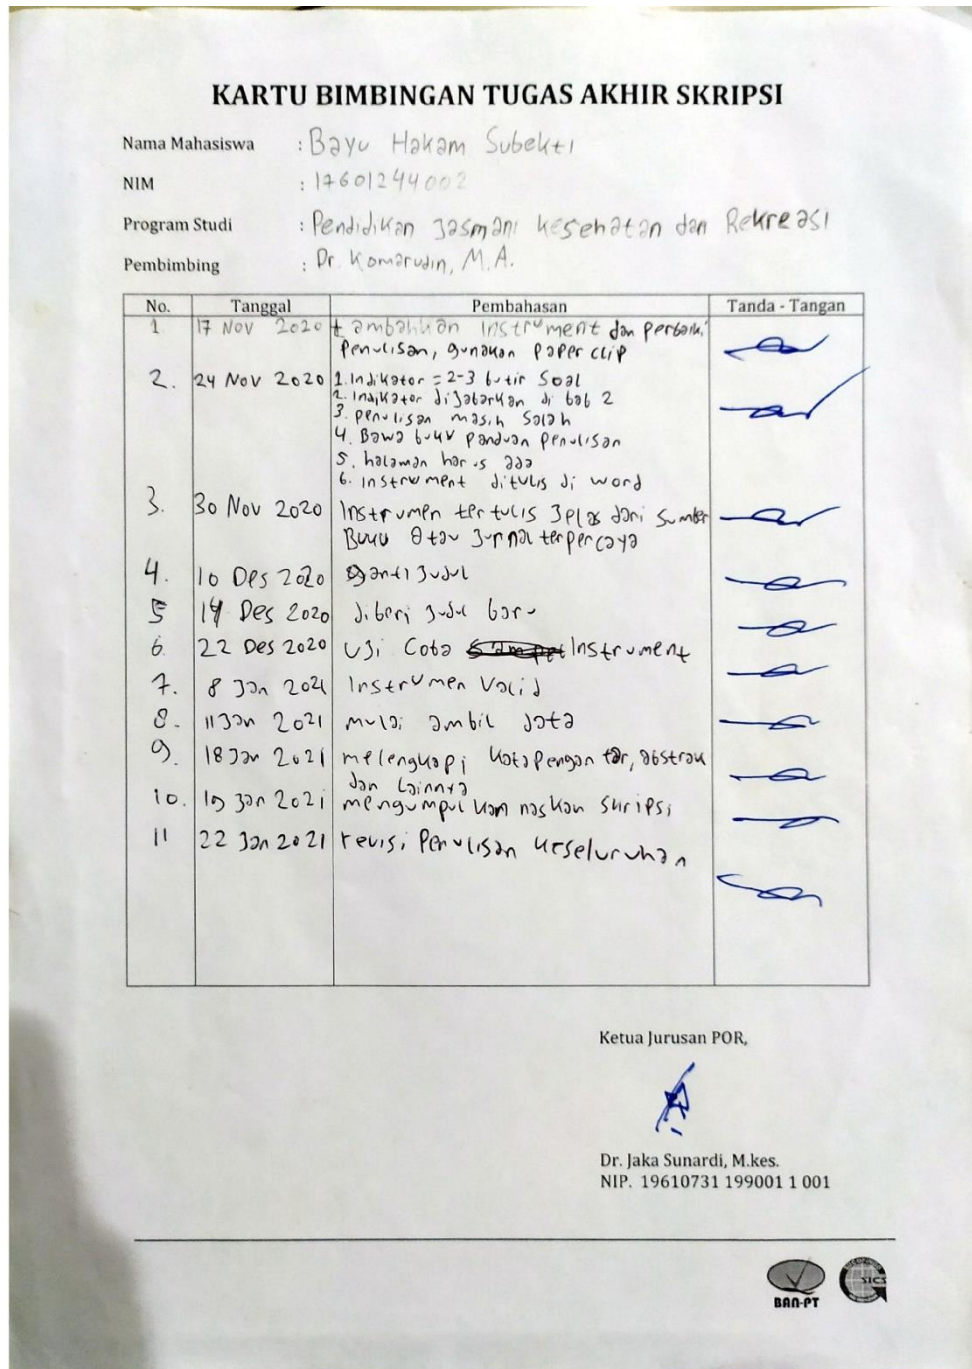 KARTU BIMBINGAN TUGAS AKHIR SKRIPSI
Nama Mahasiswa : Bayu Hakam Subekti
NIM : 17601244002
Program Studi : Pendidikan Jasmani Kesehatan dan Rekreasi
Pembimbing : Dr. Komarudin, M.A.
No. Tanggal Pembahasan Tanda - Tangan
1 17 Nov 2020 tambahkan instrument dan perbaiki
Penulisan, gunakan paper clip
2. 24 Nov 2020 1. Indikator = 2-3 butir Soal
2. Indikator dijabarkan di bab 2
3. penulisan masih salah
4. Bawa buku panduan penulisan
5. halaman harus ada
6. instrument ditulis di word
3. 30 Nov 2020 Instrumen tertulis jelas dari sumber
Buku atau Jurnal terpercaya
4. 10 Des 2020 ganti judul
5 14 Des 2020 diberi judul baru
6. 22 Des 2020 Uji Coba Instrument
7. 8 Jan 2021 Instrumen Valid
8. 11 Jan 2021 mulai ambil data
9. 18 Jan 2021 melengkapi kata pengantar, abstrak
dan lainnya
10. 19 Jan 2021 mengumpulkan naskah skripsi
11 22 Jan 2021 revisi Penulisan keseluruhan
Ketua Jurusan POR,
Dr. Jaka Sunardi, M.kes.
NIP. 19610731 199001 1 001
BAN-PT